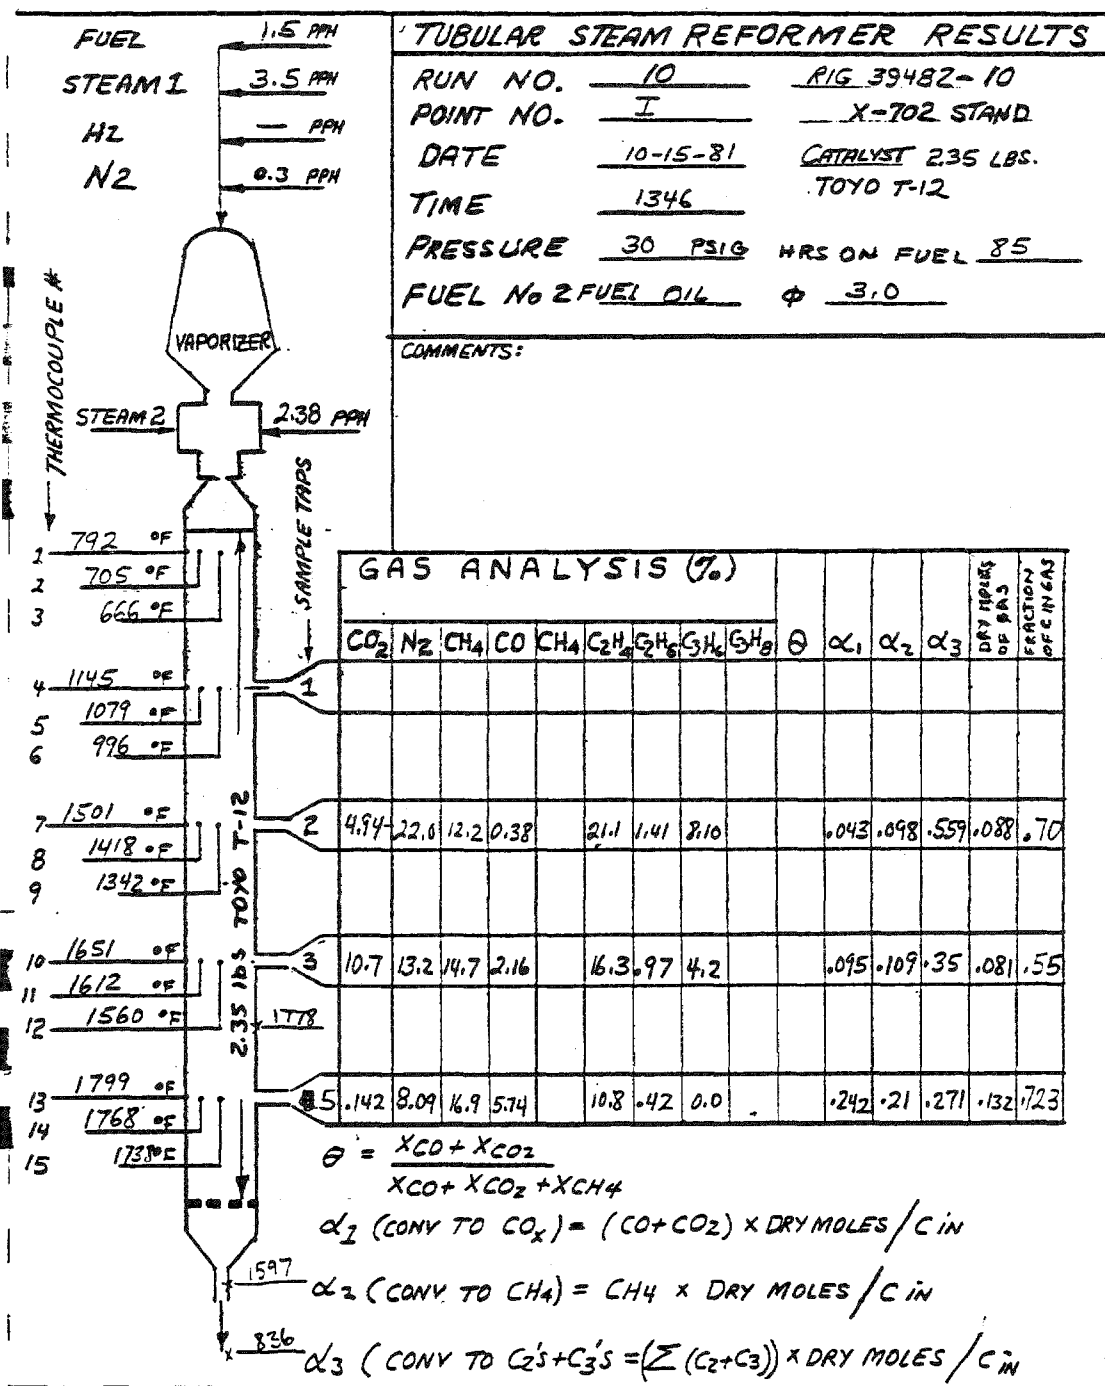 FUEL 1.5 PPH
STEAM 1 3.5 PPH
H2 — PPH
N2 0.3 PPH
TUBULAR STEAM REFORMER RESULTS
RUN NO. 10 RIG 39482-10
POINT NO. I X-702 STAND
DATE 10-15-81 CATALYST 2.35 LBS.
TOYO T-12
TIME 1346
PRESSURE 30 PSIG HRS ON FUEL 85
FUEL No 2 FUEL OIL Φ 3.0
COMMENTS:
VAPORIZER
STEAM 2 2.38 PPH
THERMOCOUPLE #
SAMPLE TAPS
1 792 °F
2 705 °F
3 666 °F
4 1145 °F
5 1079 °F
6 996 °F
7 1501 °F
8 1418 °F
9 1342 °F
10 1651 °F
11 1612 °F
12 1560 °F
1778
13 1799 °F
14 1768 °F
15 1738 °F
2.35 lbs TOYO T-12
GAS ANALYSIS (%)
CO2 N2 CH4 CO CH4 C2H4 C2H6 C3H6 C3H8 Θ α1 α2 α3 DRY MOLES OF GAS FRACTION OF C IN GAS
1
2 4.94 22.0 12.2 0.38 21.1 1.41 8.10 .043 .098 .559 .088 .70
3 10.7 13.2 14.7 2.16 16.3 .97 4.2 .095 .109 .35 .081 .55
5 .142 8.09 16.9 5.74 10.8 .42 0.0 .242 .21 .271 .132 .723
Θ = XCO + XCO2
XCO + XCO2 + XCH4
α1 (CONV TO COx) = (CO+CO2) × DRY MOLES / C IN
1597
α2 (CONV TO CH4) = CH4 × DRY MOLES / C IN
836
α3 (CONV TO C2's + C3's = (Σ (C2+C3)) × DRY MOLES / C IN